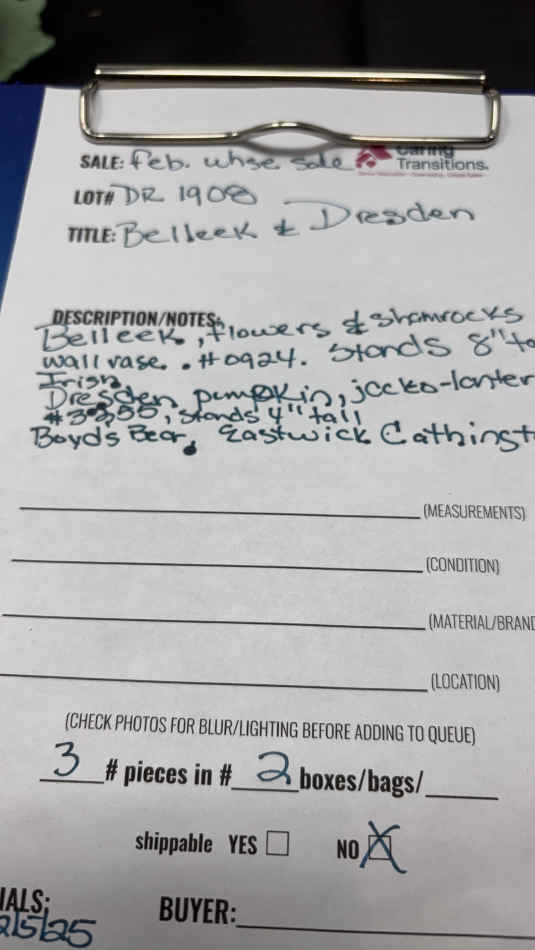 Caring
SALE: Feb. whse sale Transitions.
LOT# DR 1908
TITLE: Belleek & Dresden
DESCRIPTION/NOTES:
Belleek, flowers & shamrocks
wall vase. #0924. Stands 8" to
Irish
Dresden pumpkin, jacko-lanter
stands 4" tall
Boyds Bear, Eastwick Cathingt
(MEASUREMENTS)
(CONDITION)
(MATERIAL/BRAND
(LOCATION)
(CHECK PHOTOS FOR BLUR/LIGHTING BEFORE ADDING TO QUEUE)
3 # pieces in # 2 boxes/bags/
shippable YES NO X
IALS:
2/5/25
BUYER: